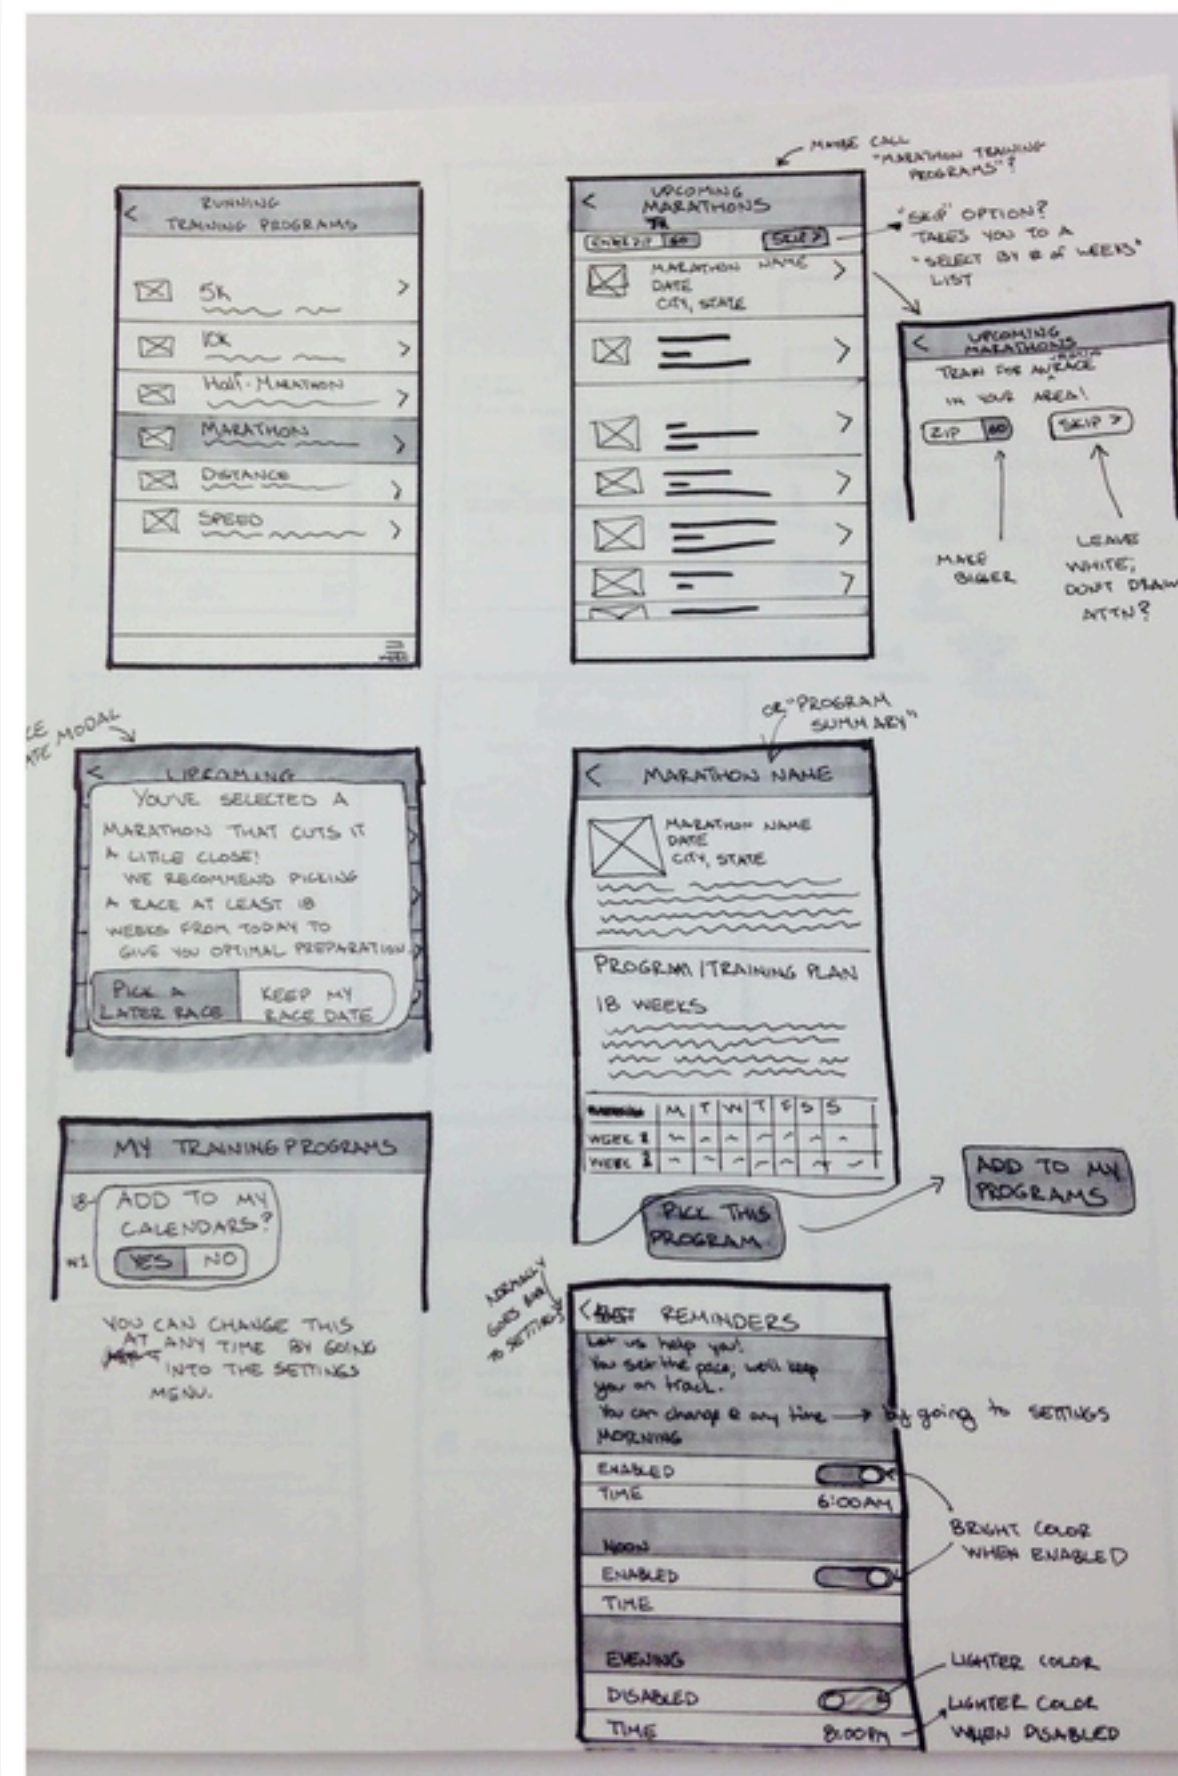 RUNNING
TRAINING PROGRAMS
5K
10K
Half-MARATHON
MARATHON
DISTANCE
SPEED
MAYBE CALL
"MARATHON TRAINING
PROGRAMS"?
<
UPCOMING
MARATHONS
ENTER ZIP GO
SKIP >
MARATHON NAME
DATE
CITY, STATE
"SKIP" OPTION?
TAKES YOU TO A
"SELECT BY # of WEEKS"
LIST
< UPCOMING
MARATHONS
TRAIN FOR AN RACE
IN YOUR AREA!
ZIP GO
SKIP >
MAKE
BIGGER
LEAVE
WHITE;
DON'T DRAW
ATTN?
MODAL
< UPCOMING
YOU'VE SELECTED A
MARATHON THAT CUTS IT
A LITTLE CLOSE!
WE RECOMMEND PICKING
A RACE AT LEAST 18
WEEKS FROM TODAY TO
GIVE YOU OPTIMAL PREPARATION.
PICK A
LATER RACE
KEEP MY
RACE DATE
OR "PROGRAM
SUMMARY"
< MARATHON NAME
MARATHON NAME
DATE
CITY, STATE
PROGRAM/TRAINING PLAN
18 WEEKS
M T W T F S S
WEEK 1
WEEK 2
PICK THIS
PROGRAM
ADD TO MY
PROGRAMS
MY TRAINING PROGRAMS
18-
ADD TO MY
CALENDARS?
#1
YES NO
YOU CAN CHANGE THIS
AT ANY TIME BY GOING
INTO THE SETTINGS
MENU.
NORMALLY
GOES BACK
TO SETTINGS
< REMINDERS
Let us help you!
You set the pace, we'll keep
you on track.
You can change @ any time → by going to SETTINGS
MORNING
ENABLED
TIME 6:00AM
NOON
ENABLED
TIME
BRIGHT COLOR
WHEN ENABLED
EVENING
DISABLED
TIME 8:00PM
LIGHTER COLOR
LIGHTER COLOR
WHEN DISABLED